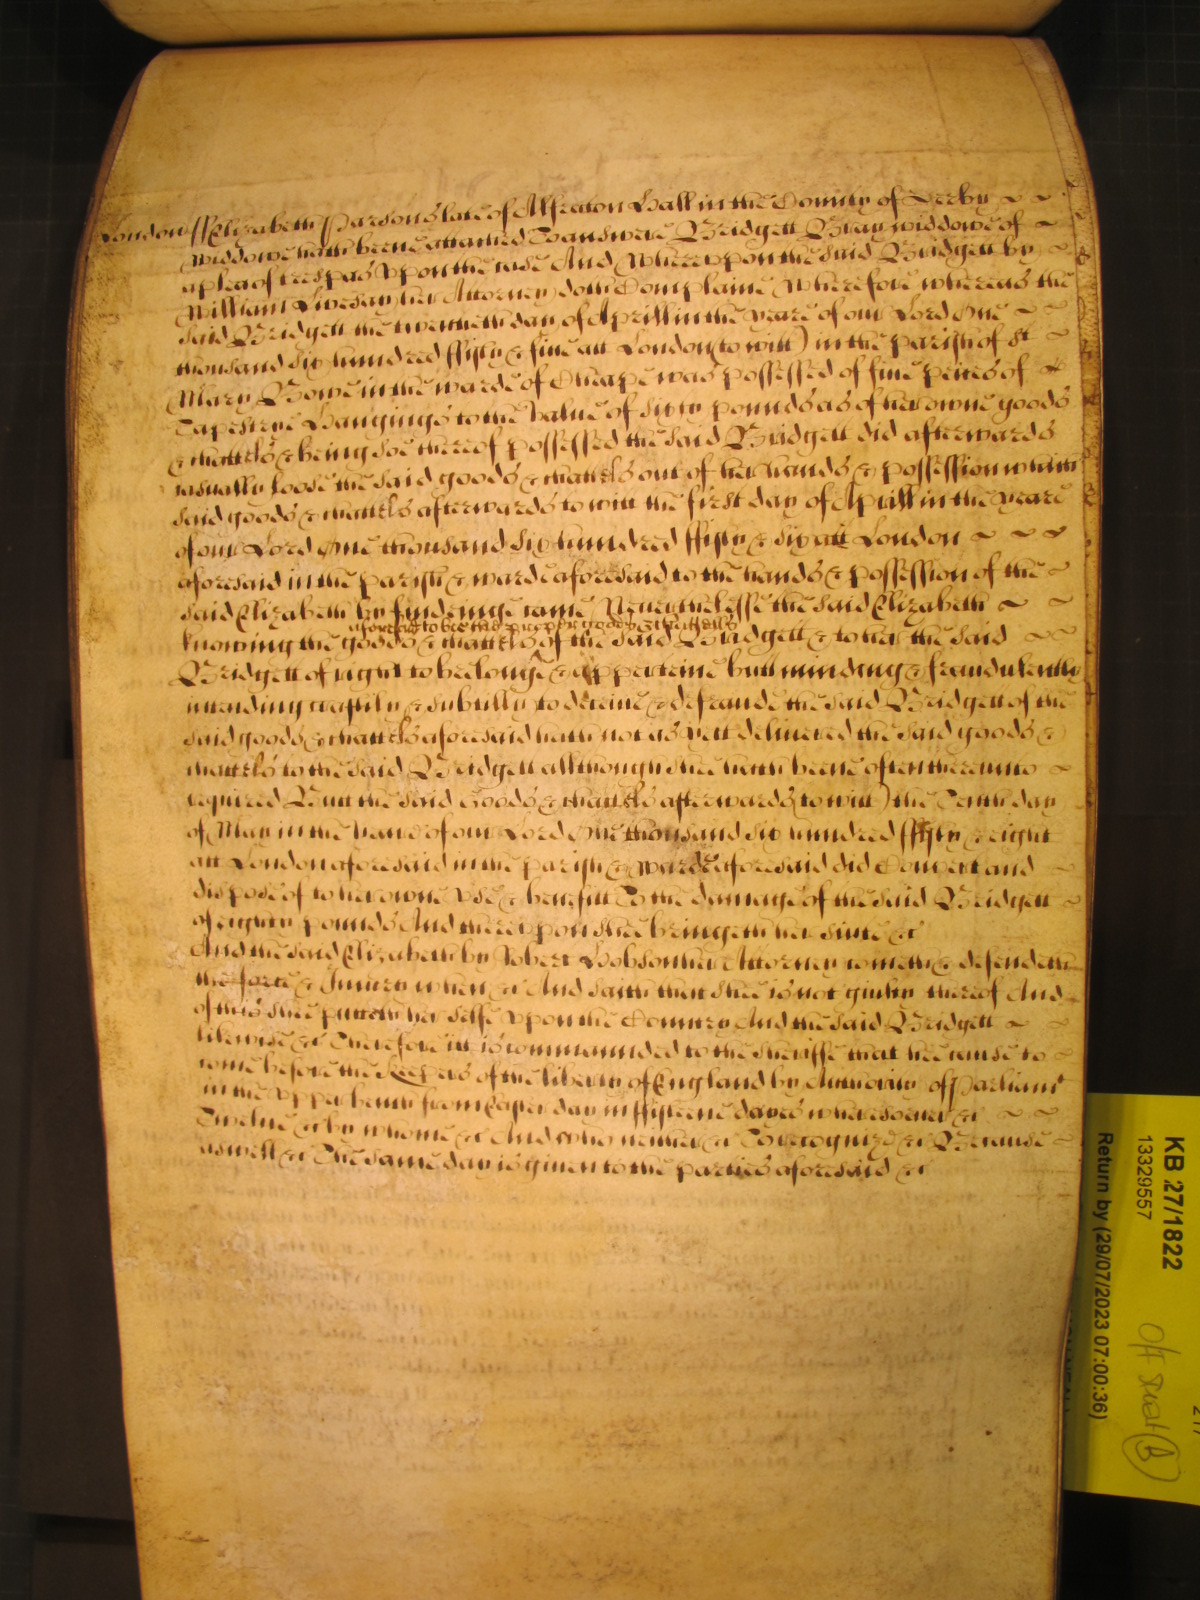 London ss Elizabeth Parsons late of Alfreton Hall in the County of Derby
widdowe hath beene attached To answere Bridgett Bray widdowe of
a plea of trespas vpon the case And Wherevpon the said Bridgett by
William Livesay her Attorney doth Complaine Wherefore whereas the
said Bridgett the twentieth day of Aprill in the yeare of our Lord One
thousand six hundred ffifty & five att London (to witt) in the parish of St
Mary Bowe in the warde of Cheape was possessed of five peices of
Tapestrye Hangings to the value of sixty pounds as of her owne goods
& chattels & being soe thereof possessed the said Bridgett did afterwards
casually loose the said goods & chattels out of her hands & possession which
said goods & chattels afterwards to witt the first day of Aprill in the yeare
of our Lord One thousand six hundred ffifty & six att London
aforesaid in the parish & warde aforesaid to the hands & possession of the
said Elizabeth by findeinge came Neverthelesse the said Elizabeth
aforesaid to bee the proper goods & chattells
knowing the goods & chattels of the said Bridgett & to her the said
Bridgett of right to belonge & apperteine butt minding & fraudulently
intending craftily & subtilly to deceive & defraude the said Bridgett of the
said goods & chattels aforesaid hath not as yett delivered the said goods &
chattels to the said Bridgett allthough shee hath beene often thereunto
required Butt the said Goods & chattels afterwards (to witt) the Tenth day
of May in the yeare of our Lord One thousand six hundred ffifty & eight
att London aforesaid in the parish & warde aforesaid did Convert and
dispose of to her owne vse & benefitt To the damage of the said Bridgett
of eighty pounds And therevpon shee bringeth her suite &c
And the said Elizabeth by Robert Hobson her Attorney cometh & defendeth
the force & Iniury when &c And saith that shee is not guilty thereof And
of this shee putteth her selfe vpon the Country And the said Bridgett
likewise &c Therefore itt is commaunded to the sheriffe that hee cause to
come before the Keepers of the liberty of England by Authority of Parliamt
in the vpper bench from Easter day in ffifteene dayes wheresoever &c
Twelve &c by whome &c And who neither &c To recognize &c Because
aswell &c The same day is given to the parties aforesaid &c
KB 27/1822
13329557
Return by (29/07/2023 07:00:36)